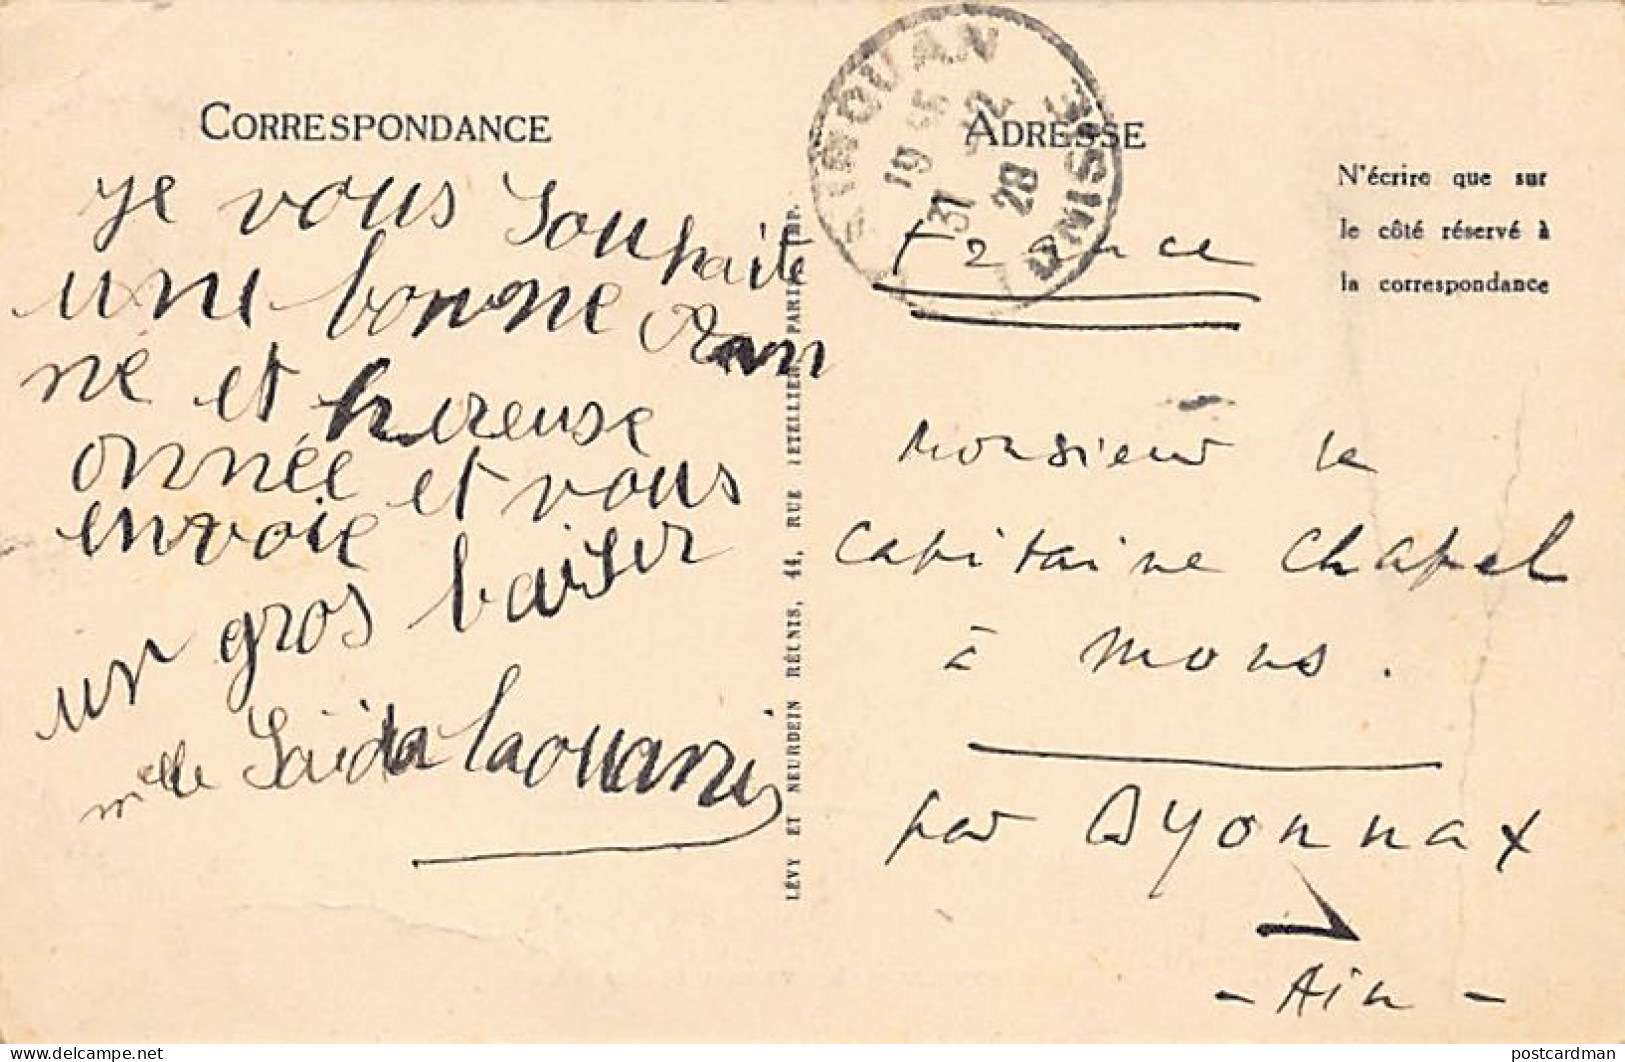 CORRESPONDANCE
Je vous Souhaite
une bonone an
né et hureuse
onnée et vous
envoie
un gros baiser
melle Saïda Laouani
LÉVY ET NEURDEIN RÉUNIS, 44, RUE LETELLIER, PARIS IMP.
ADRESSE
KAIROUAN
19 45
31 - 12
28
TUNISIE
N'écrire que sur
le côté réservé à
la correspondance
France
Monsieur le
Capitaine Chapel
à Mons.
par Oyonnax
- Ain -
delcampe.net
postcardman